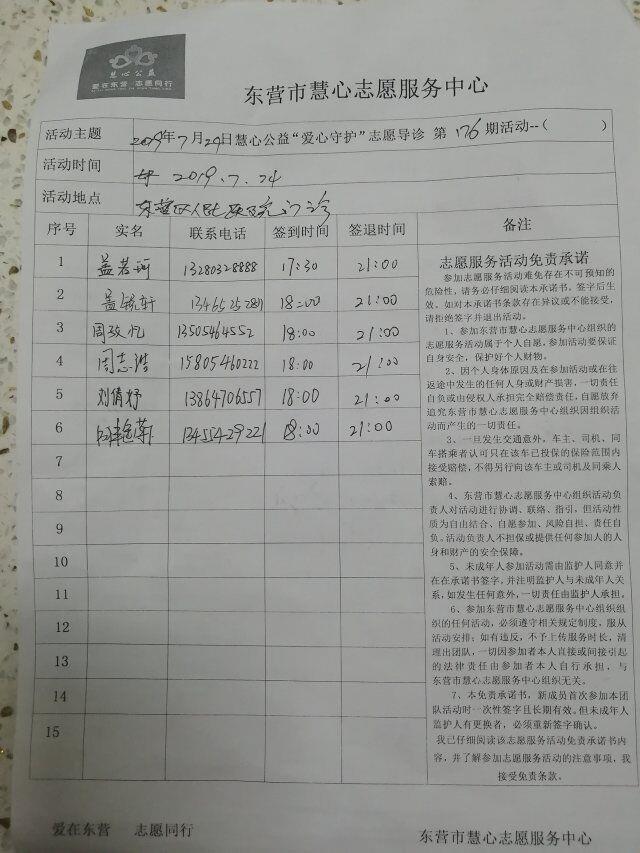 慧心公益
爱在东营 志愿同行
东营市慧心志愿服务中心
活动主题 2019年7月24日慧心公益“爱心守护”志愿导诊 第176期活动--( )
活动时间 2019.7.24
活动地点 东营区人民医院门诊
序号 实名 联系电话 签到时间 签退时间 备注
1 盖若珂 13280328888 17:30 21:00
2 盖锐轩 13465252891 18:00 21:00
3 周致忆 13505464552 18:00 21:00
4 周志浩 15805460222 18:00 21:00
5 刘倩妤 13864706557 18:00 21:00
6 13455429221 18:00 21:00
7
8
9
10
11
12
13
14
15
志愿服务活动免责承诺
参加志愿服务活动难免存在不可预知的
危险性，请务必仔细阅读本承诺书。签字后生
效。如对本承诺书条款存在异议或不能接受，
请拒绝签字并退出活动。
1、参加东营市慧心志愿服务中心组织的
志愿服务活动属于个人自愿。参加活动要保证
自身安全，保护好个人财物。
2、因个人身体原因及在参加活动或在往
返途中发生的任何人身或财产损害，一切责任
自负或由侵权人承担完全赔偿责任，自愿放弃
追究东营市慧心志愿服务中心组织因组织活
动而产生的一切责任。
3、一旦发生交通意外，车主、司机、同
车搭乘者认可只在该车已投保的保险范围内
接受赔偿，不得另行向该车主或司机及同乘人
索赔。
4、东营市慧心志愿服务中心组织活动负
责人对活动进行协调、联络、指引，但活动性
质为自由结合、自愿参加、风险自担、责任自
负。活动负责人不担保或提供任何参加人的人
身和财产的安全保障。
5、未成年人参加活动需由监护人同意并
在在承诺书签字，并注明监护人与未成年人关
系，如发生任何意外，一切责任由监护人承担。
6、参加东营市慧心志愿服务中心组织组
织的任何活动，必须遵守相关规定制度，服从
活动安排；如有违反，不予上传服务时长，清
理出团队，一切因参加者本人直接或间接引起
的法律责任由参加者本人自行承担，与
东营市慧心志愿服务中心组织无关。
7、本免责承诺书，新成员首次参加本团
队活动时一次性签字且长期有效。但未成年人
监护人有更换者，必须重新签字确认。
我已仔细阅读该志愿服务活动免责承诺书内
容，并了解参加志愿服务活动的注意事项，我
接受免责条款。
爱在东营 志愿同行 东营市慧心志愿服务中心